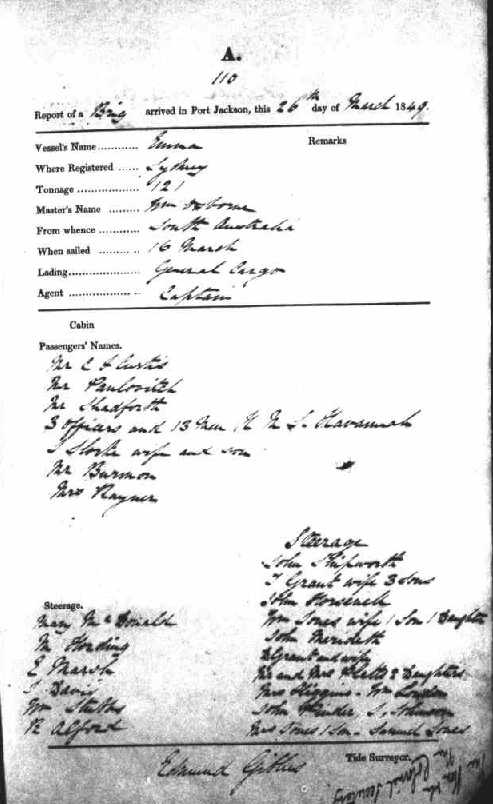 A.
110
Report of a Brig arrived in Port Jackson, this 26th day of March 1849.
Vessel's Name ........... Emma
Remarks
Where Registered ...... Sydney
Tonnage .................. 121
Master's Name ......... Wm Osborne
From whence ............ South Australia
When sailed ............ 16 March
Lading..................... General Cargo
Agent ..................... Captain
Cabin
Passengers' Names.
Mr Curtis
Mr Paulovitch
Mr Shadforth
3 Officers and 13 Men H M S. Havannah
wife and son
Mr Burmon
Mrs Rayner
Steerage.
Mary McDonald
M Harding
E Marsh
J Davis
Wm Stubbs
R Alford
Steerage
John Shipworth
T Grant wife 3 sons
John
Wm Jones wife 1 Son 1 Daughter
John Merideth
Grant and wife
Mr and Mrs 2 Daughters
Mrs Higgins - Wm London
John J. Johnson
Mrs Jones 1 Son - Samuel Jones
Edmund Gibbes
Tide Surveyor.